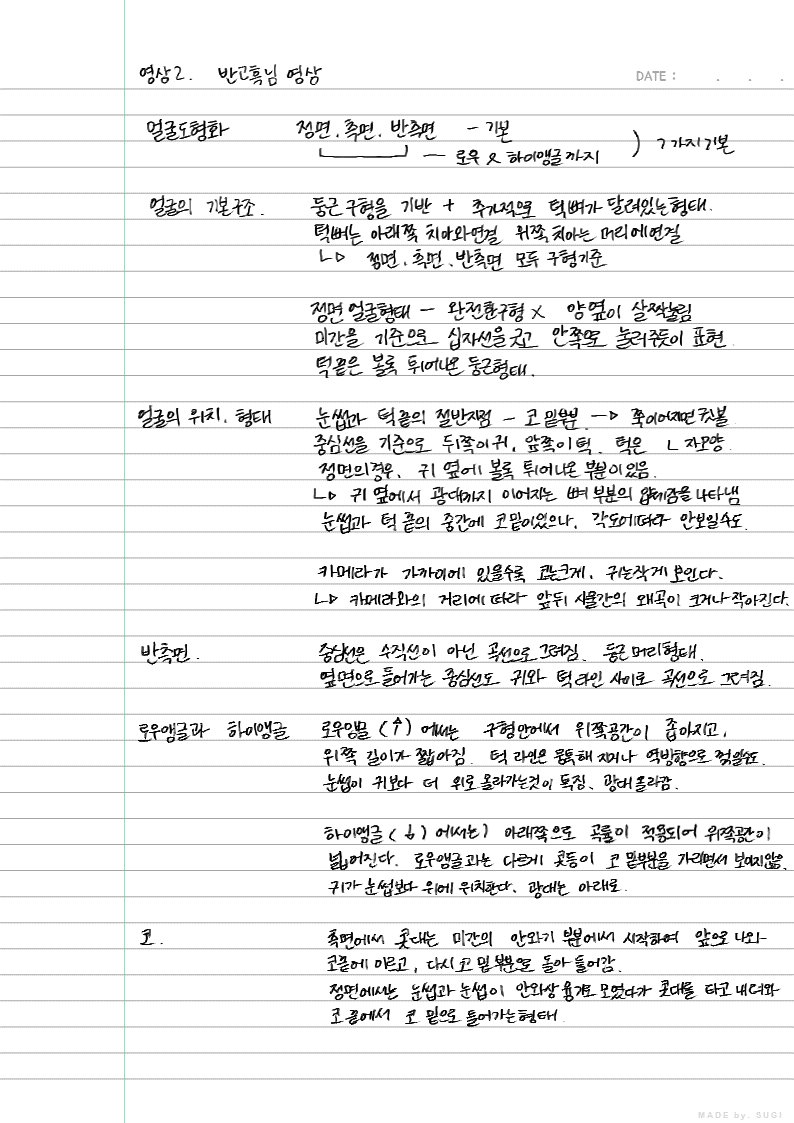 영상2. 반고흑님 영상
DATE : . . .
얼굴도형화 정면, 측면, 반측면 - 기본
— 로우 & 하이앵글까지 ) 7가지기본
얼굴의 기본구조. 둥근구형을 기반 + 추가적으로 턱뼈가 달려있는형태.
턱뼈는 아래쪽 치아와연결 위쪽치아는 머리에연결
↳ 정면, 측면, 반측면 모두 구형기준
정면 얼굴형태 - 완전한구형 X 양옆이 살짝눌림
미간을 기준으로 십자선을 긋고 안쪽으로 눌러주듯이 표현.
턱끝은 볼록 튀어나온 둥근형태.
얼굴의 위치, 형태 눈썹과 턱끝의 절반지점 - 코밑부분 -> 쭉이어지면 귓볼
중심선을 기준으로 뒤쪽이귀, 앞쪽이턱. 턱은 ㄴ자모양.
정면의경우, 귀 옆에 볼록 튀어나온 부분이있음.
↳ 귀 옆에서 광대까지 이어지는 뼈 부분의 입체감을 나타냄
눈썹과 턱 끝의 중간에 코밑이있으나, 각도에따라 안보일수도.
카메라가 가까이에 있을수록 코는크게, 귀는작게보인다.
↳ 카메라와의 거리에 따라 앞뒤 사물간의 왜곡이 크거나 작아진다.
반측면. 중심선은 수직선이 아닌 곡선으로 그려짐. 둥근머리형태.
옆면으로 들어가는 중심선도 귀와 턱라인 사이로 곡선으로 그려짐.
로우앵글과 하이앵글 로우앵글 (↑) 에서는 구형안에서 위쪽공간이 좁아지고,
위쪽 길이가 짧아짐. 턱 라인은 뭉툭해지거나 역방향으로 꺾일수도.
눈썹이 귀보다 더 위로올라가는것이 특징, 광대올라감.
하이앵글 (↓) 에서는 아래쪽으로 곡률이 적용되어 위쪽공간이
넓어진다. 로우앵글과는 다르게 콧등이 코 밑부분을 가리면서 보이지않음.
귀가 눈썹보다 위에 위치한다, 광대는 아래로.
코. 측면에서 콧대는 미간의 안와기 부분에서 시작하여 앞으로 나와
코끝에 이르고, 다시 코 밑부분으로 돌아 들어감.
정면에서는 눈썹과 눈썹이 안와상융기로 모였다가 콧대를 타고 내려와
코 끝에서 코 밑으로 들어가는형태.
MADE by. SUGI